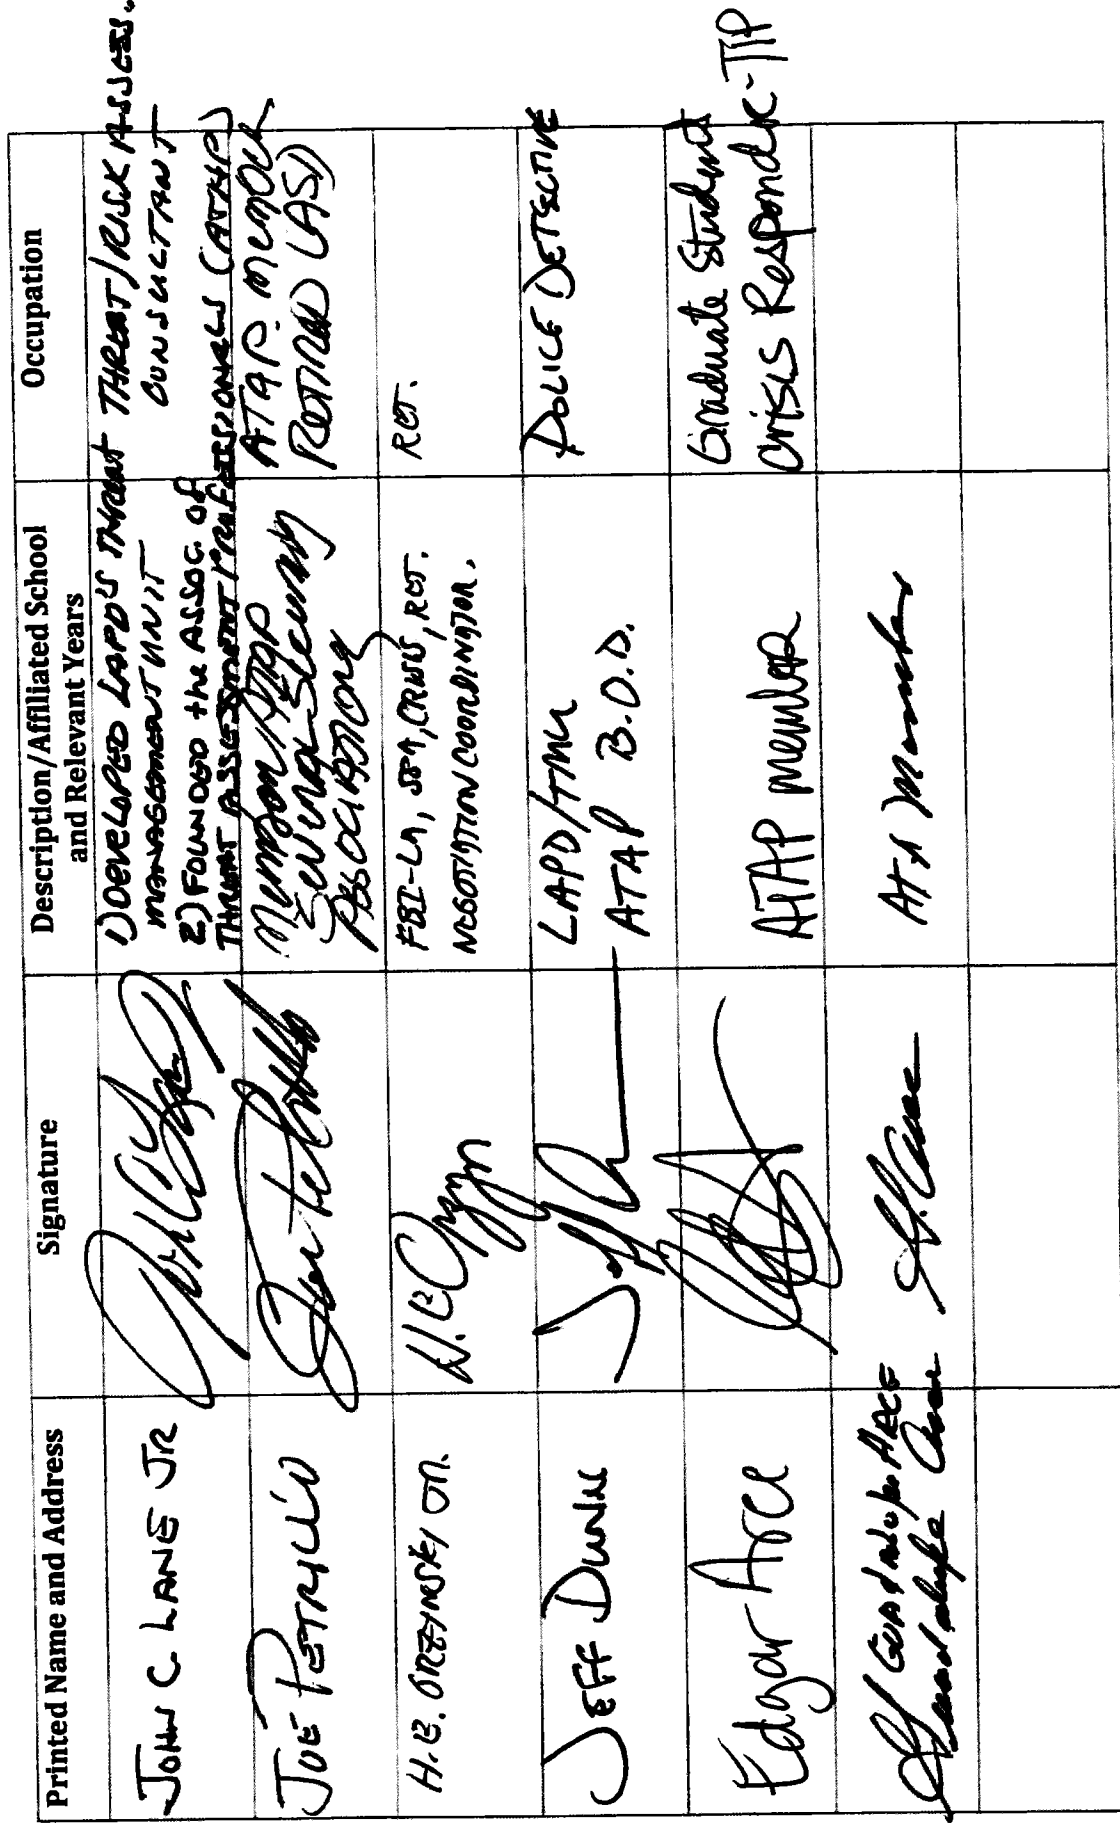 Printed Name and Address
Signature
Description/Affiliated School
and Relevant Years
Occupation
JOHN C. LANE JR
1) DEVELOPED LAPD'S THREAT
MANAGEMENT UNIT
2) FOUNDED the ASSOC. OF
THREAT ASSESSMENT PROFESSIONALS (ATAP)
THREAT/RISK ASSES.
CONSULTANT
JOE PETRILLO
Member/ATAP
Security
Association
ATAP. Member
RETIRED
H.B. ORZYNSKI JR.
FBI-LA, SSA, CRNU, RET.
NEGOTIATION COORDINATOR.
RET.
JEFF DUNN
LAPD/TMU
ATAP B.O.D.
POLICE DETECTIVE
Edgar Arce
ATAP member
Graduate Student
Crisis Responder-TIP
Guadalupe ARCE
Guadalupe Arce
ATA Member